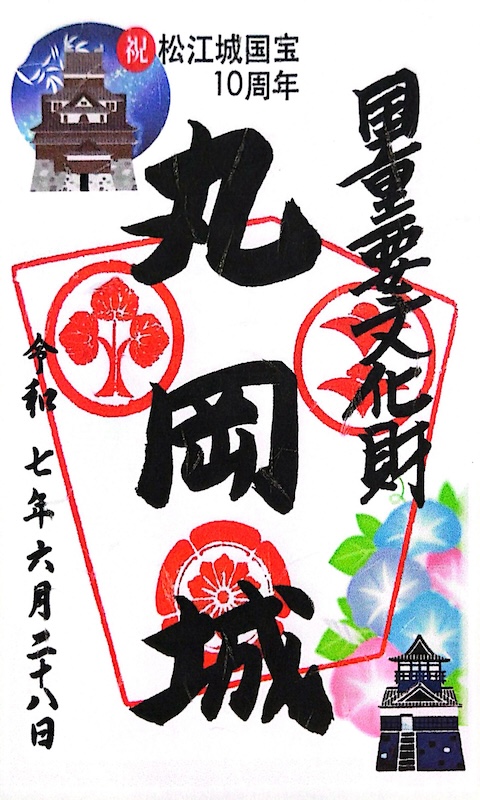 祝
松江城国宝
10周年
国重要文化財
丸岡城
令和七年六月二十八日